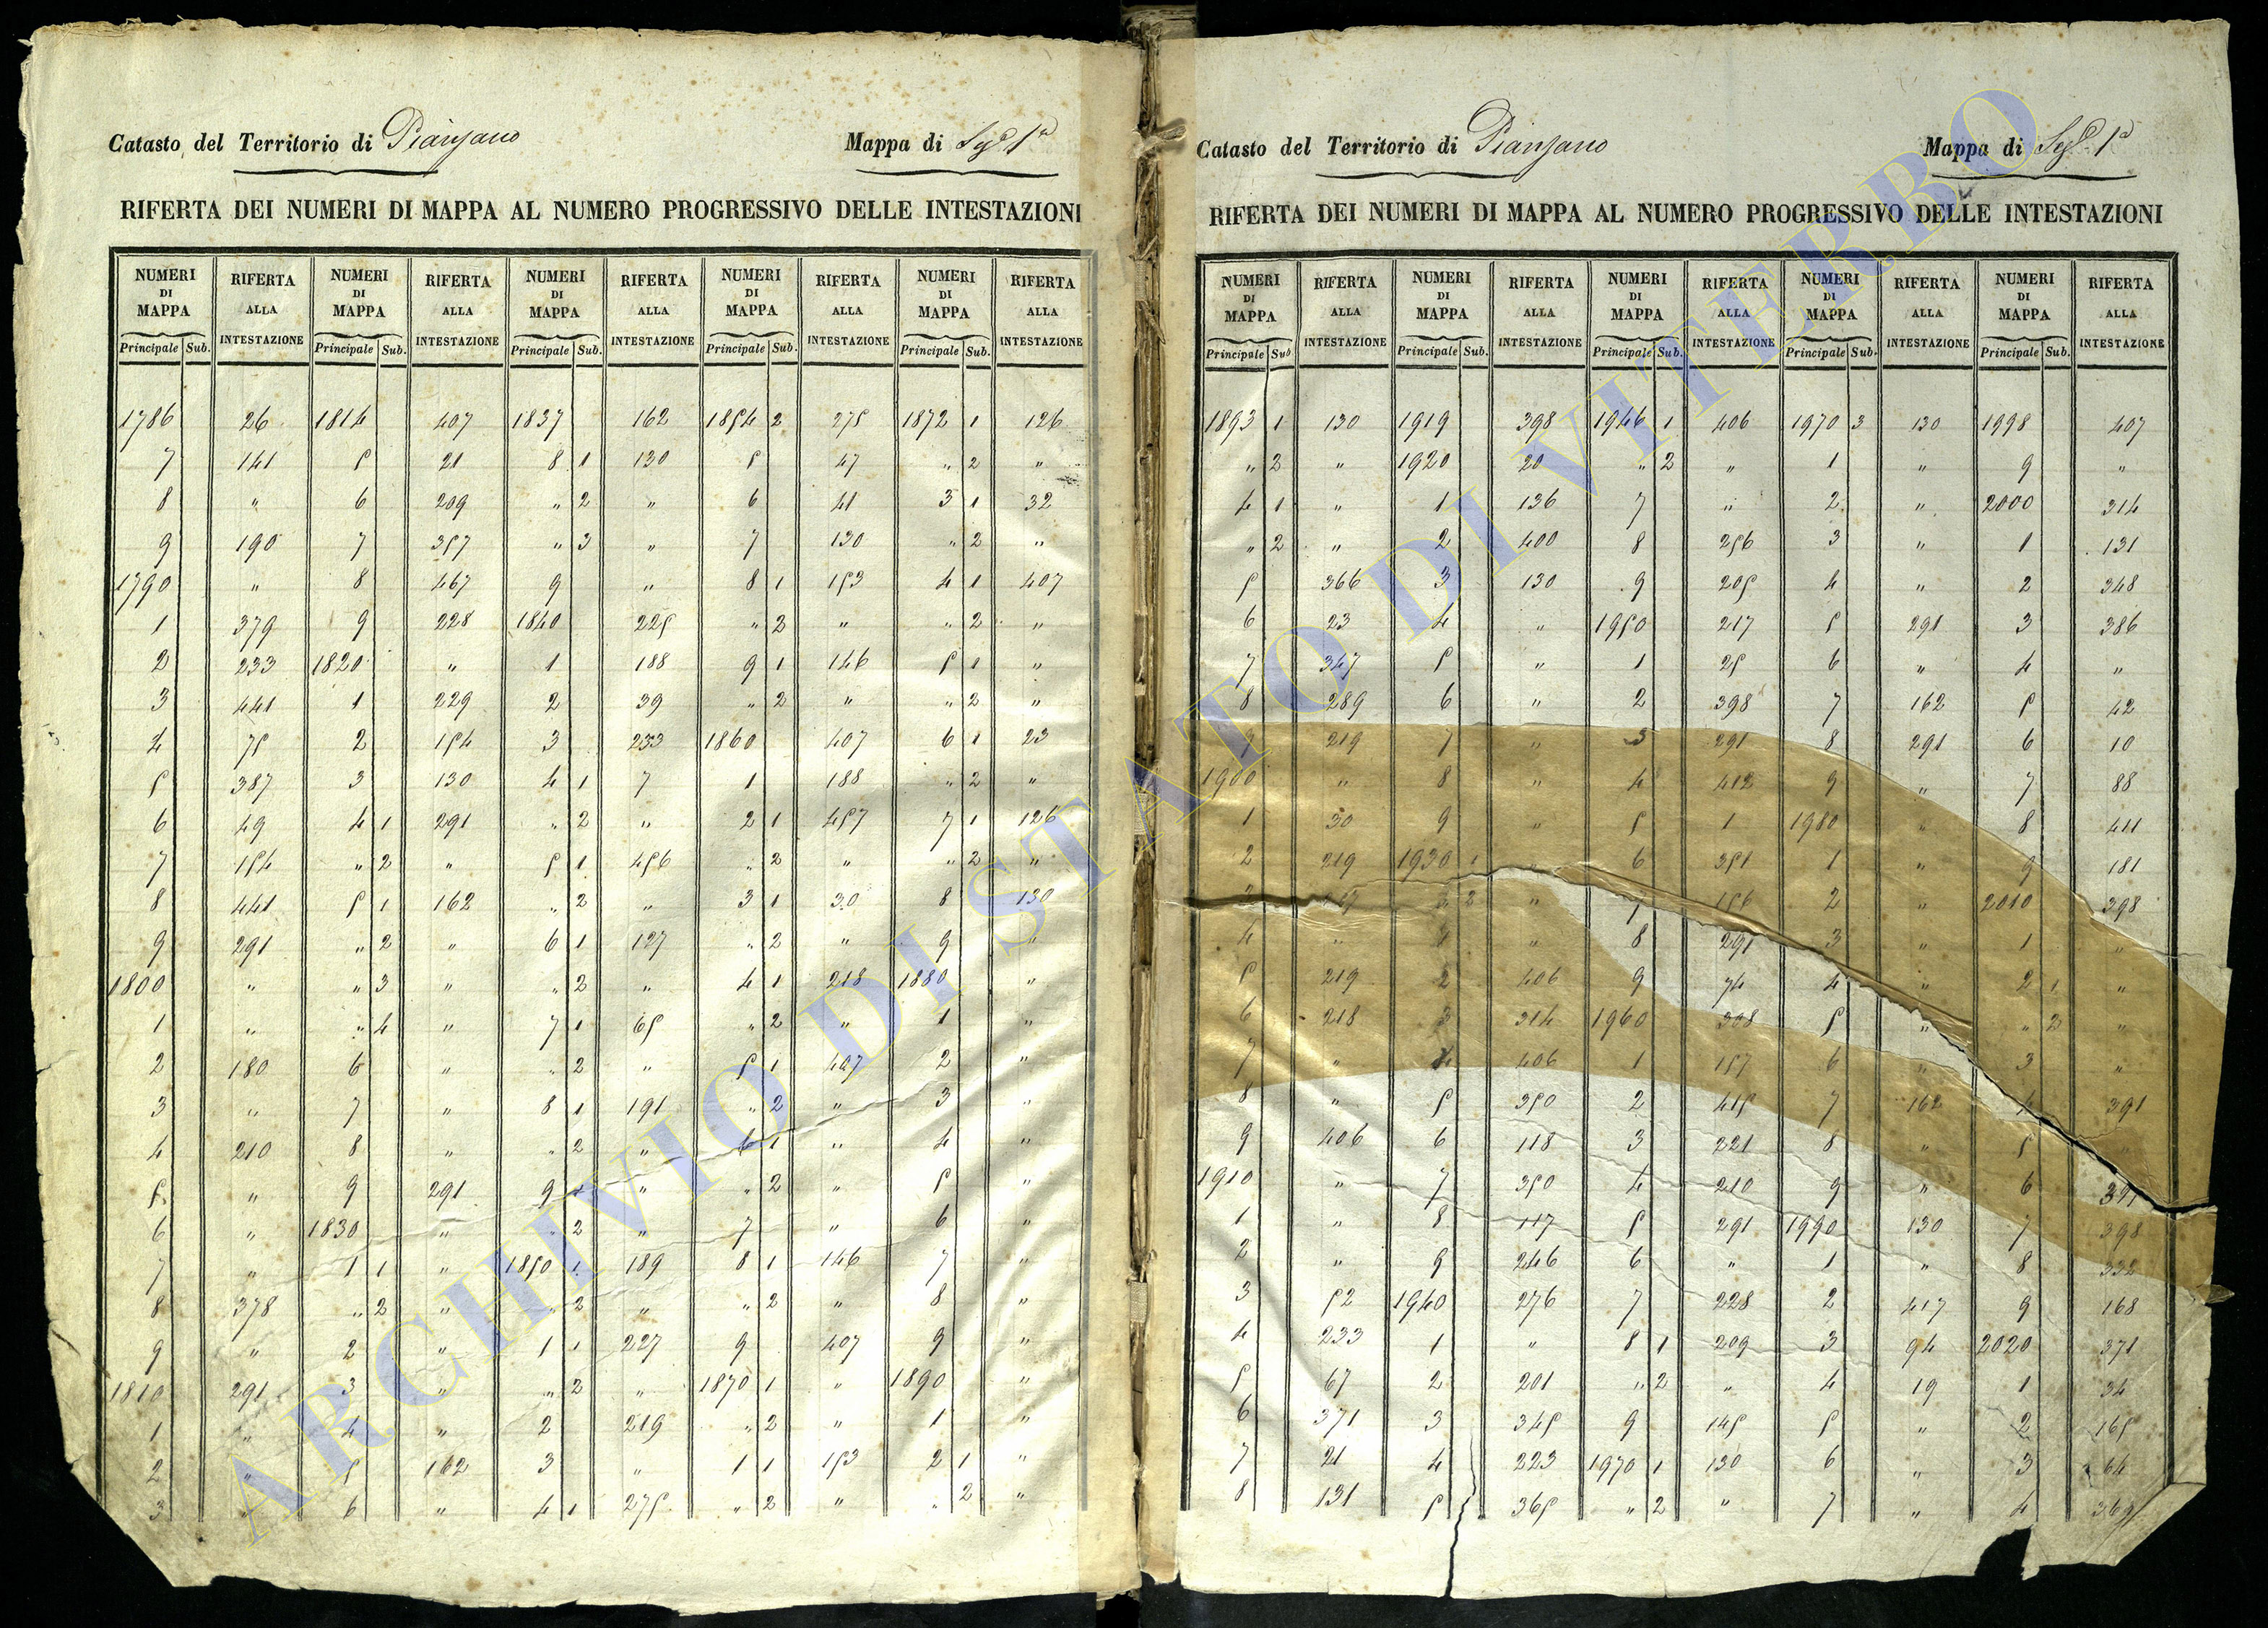 Catasto del Territorio di Pianzano
Mappa di Sez. 1a
RIFERTA DEI NUMERI DI MAPPA AL NUMERO PROGRESSIVO DELLE INTESTAZIONI
NUMERI RIFERTA NUMERI RIFERTA NUMERI RIFERTA NUMERI RIFERTA NUMERI RIFERTA
DI ALLA DI ALLA DI ALLA DI ALLA DI ALLA
MAPPA INTESTAZIONE MAPPA INTESTAZIONE MAPPA INTESTAZIONE MAPPA INTESTAZIONE MAPPA INTESTAZIONE
Principale Sub. Principale Sub. Principale Sub. Principale Sub. Principale Sub.
1786 26 1814 407 1837 162 1854 2 275 1872 1 126
7 141 5 21 8 1 130 5 47 „ 2 „
8 „ 6 209 „ 2 „ 6 41 3 1 32
9 190 7 357 „ 3 „ 7 130 „ 2 „
1790 „ 8 467 9 „ 8 1 153 4 1 407
1 379 9 228 1840 225 „ 2 „ „ 2 „
2 233 1820 „ 1 188 9 1 146 5 1 „
3 441 1 229 2 39 „ 2 „ „ 2 „
4 75 2 154 3 233 1860 407 6 1 23
5 387 3 130 4 1 7 1 188 „ 2 „
6 49 4 1 291 „ 2 „ 2 1 457 7 1 126
7 154 „ 2 „ 5 1 456 „ 2 „ „ 2 „
8 441 5 1 162 „ 2 „ 3 1 30 8 130
9 291 „ 2 „ 6 1 127 „ 2 „ 9 „
1800 „ „ 3 „ „ 2 „ 4 1 218 1880 „
1 „ „ 4 „ 7 1 65 „ 2 „ 1 „
2 180 6 „ „ 2 „ 5 1 407 2 „
3 „ 7 „ 8 1 191 „ 2 „ 3 „
4 210 8 „ „ 2 „ 6 1 „ 4 „
5 „ 9 291 9 1 „ „ 2 „ 5 „
6 „ 1830 „ „ 2 „ 7 „ 6 „
7 „ 1 1 „ 1850 1 189 8 1 146 7 „
8 378 „ 2 „ „ 2 „ „ 2 „ 8 „
9 „ 2 „ 1 1 227 9 407 9 „
1810 291 3 „ „ 2 „ 1870 1 „ 1890 „
1 „ 4 „ 2 219 „ 2 „ 1 „
2 „ 5 162 3 „ 1 1 153 2 1 „
3 „ 6 „ 4 1 275 „ 2 „ „ 2 „
Catasto del Territorio di Pianzano
Mappa di Sez. 1a
RIFERTA DEI NUMERI DI MAPPA AL NUMERO PROGRESSIVO DELLE INTESTAZIONI
NUMERI RIFERTA NUMERI RIFERTA NUMERI RIFERTA NUMERI RIFERTA NUMERI RIFERTA
DI ALLA DI ALLA DI ALLA DI ALLA DI ALLA
MAPPA INTESTAZIONE MAPPA INTESTAZIONE MAPPA INTESTAZIONE MAPPA INTESTAZIONE MAPPA INTESTAZIONE
Principale Sub Principale Sub. Principale Sub. Principale Sub. Principale Sub.
1893 1 130 1919 398 1946 1 406 1970 3 130 1998 407
„ 2 „ 1920 20 „ 2 „ 1 „ 9 „
4 1 „ 1 136 7 „ 2 „ 2000 314
„ 2 „ 2 400 8 256 3 „ 1 131
5 366 3 130 9 205 4 „ 2 348
6 23 4 „ 1950 217 5 291 3 386
7 347 5 „ 1 25 6 „ 4 „
8 289 6 „ 2 398 7 162 5 42
9 219 7 „ 3 291 8 291 6 10
1900 „ 8 „ 4 412 9 „ 7 88
1 30 9 „ 5 1 1980 „ 8 411
2 219 1930 1 „ 6 351 1 „ 9 181
„ 2 „ 7 156 2 „ 2010 398
4 „ 1 „ 8 291 3 „ 1 „
5 219 2 406 9 74 4 „ 2 1 „
6 218 3 314 1960 308 5 „ „ 2 „
7 „ 4 406 1 157 6 „ 3 „
8 „ 5 350 2 415 7 162 4 391
9 406 6 118 3 221 8 „ 5 „
1910 „ 7 350 4 210 9 „ 6
1 „ 8 117 5 291 1990 130 7 398
2 „ 9 246 6 „ 1 „ 8 332
3 52 1940 276 7 228 2 417 9 168
4 233 1 „ 8 1 209 3 94 2020 371
5 67 2 201 „ 2 „ 4 19 1 34
6 371 3 345 9 145 5 „ 2 165
7 21 4 223 1970 1 130 6 „ 3 64
8 131 5 365 „ 2 „ 7 „ 4 369
ARCHIVIO DI STATO DI VITERBO